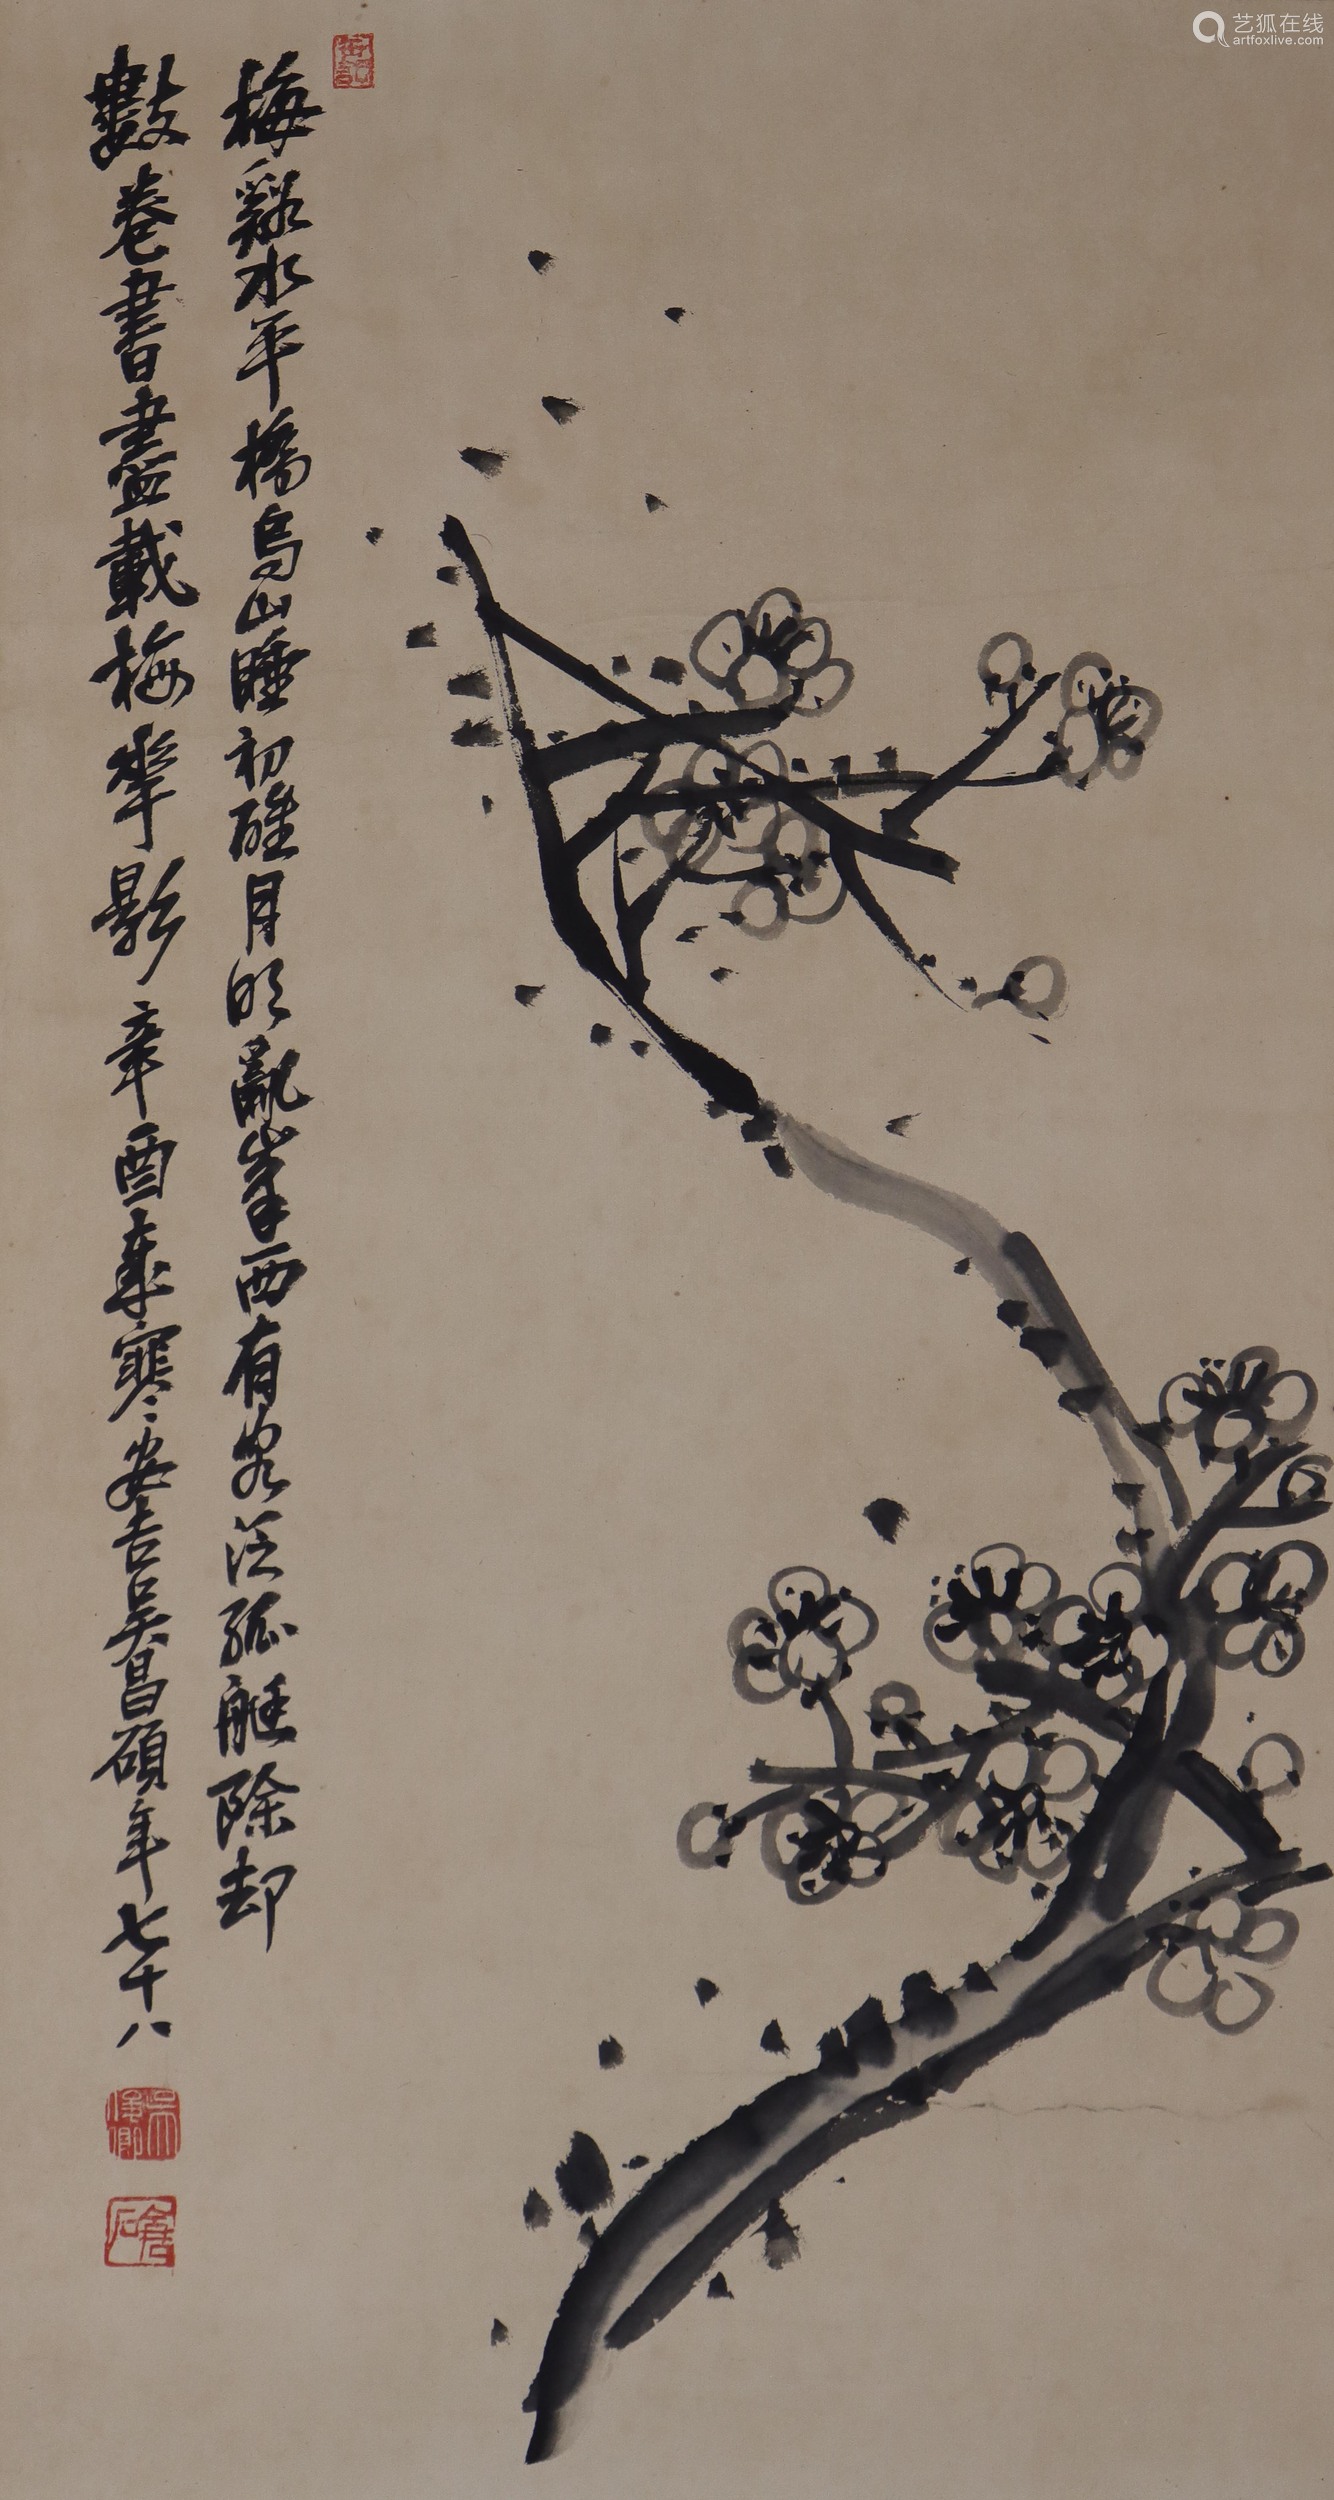 艺狐在线
artfoxlive.com
梅谿水平橋烏山睡初醒月明亂峯西有客泛孤艇除却
數卷書盡載梅華影辛酉春寒安吉吳昌碩年七十八